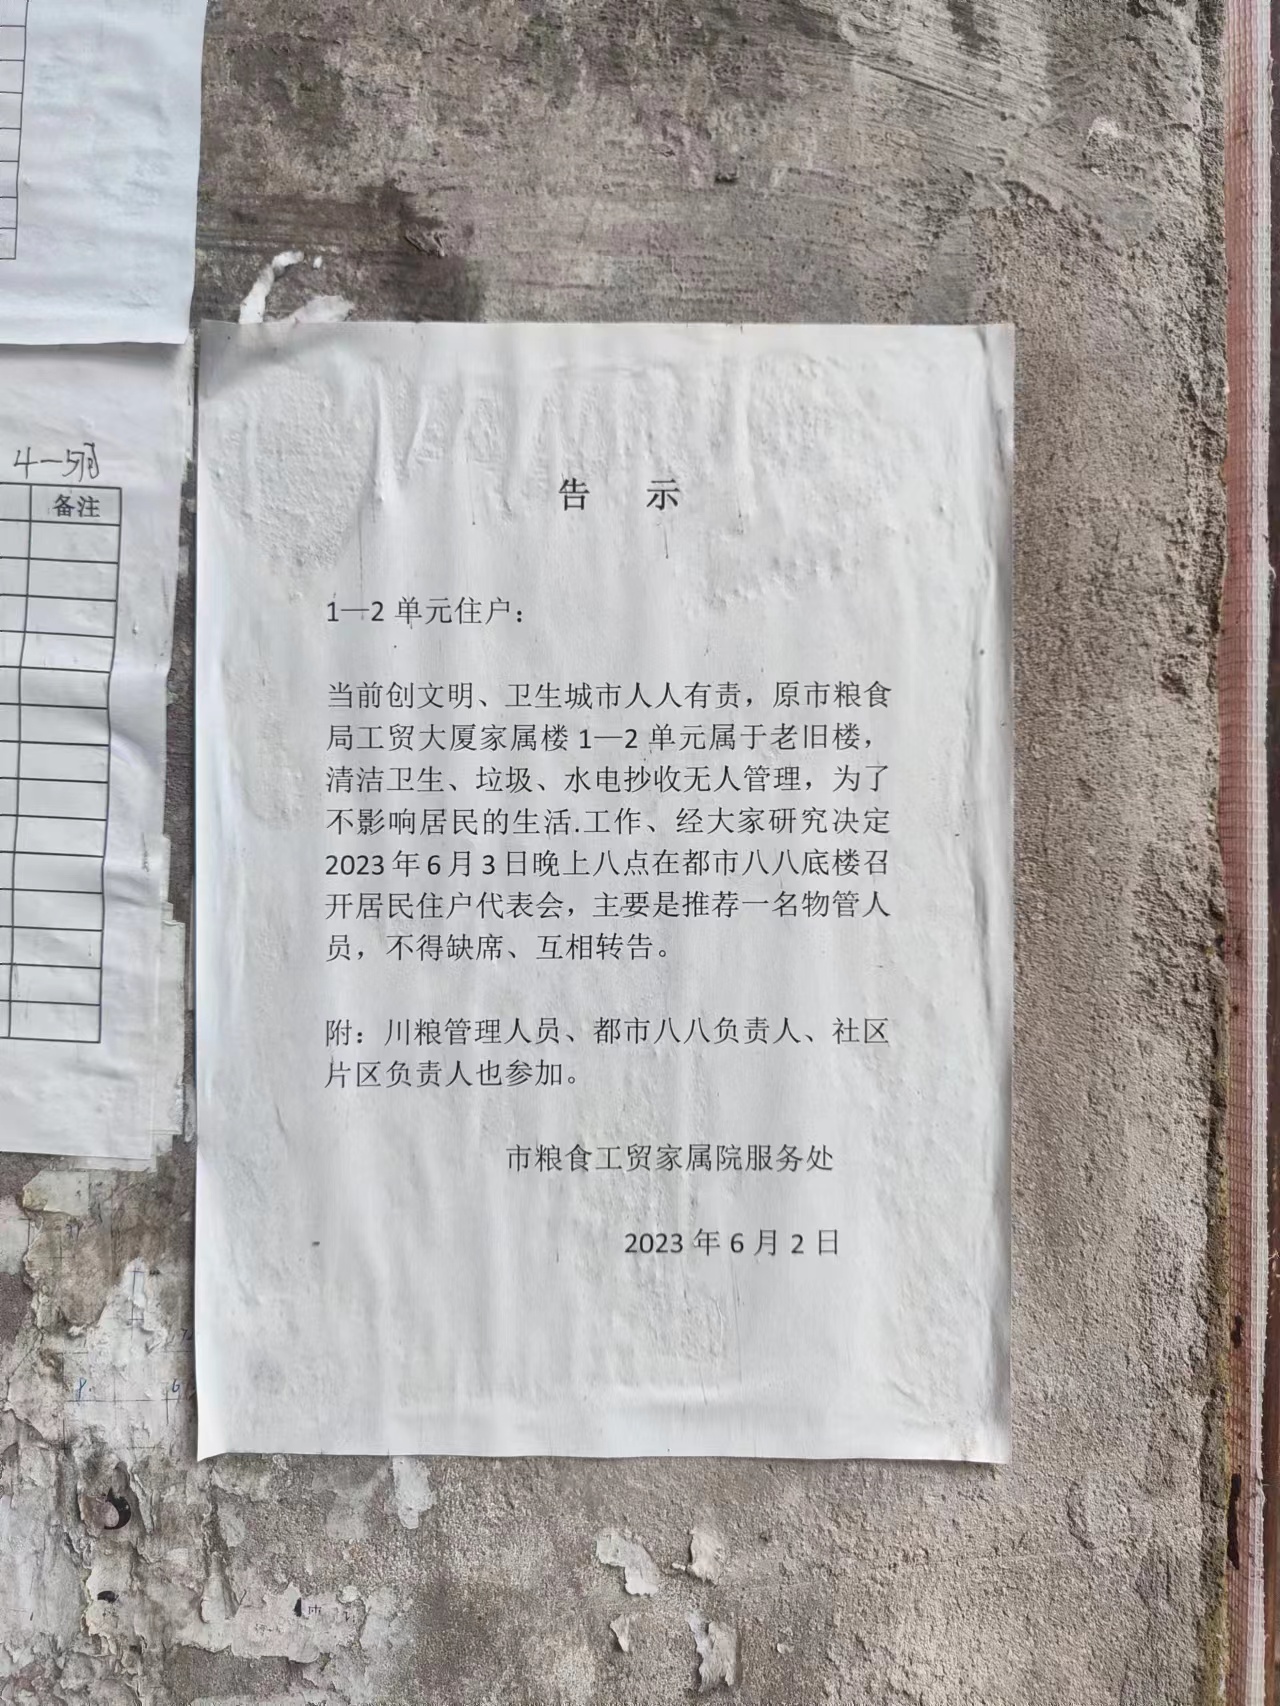 4—5月
备注
告 示
1—2 单元住户：
当前创文明、卫生城市人人有责，原市粮食
局工贸大厦家属楼 1—2 单元属于老旧楼，
清洁卫生、垃圾、水电抄收无人管理，为了
不影响居民的生活.工作、经大家研究决定
2023 年 6 月 3 日晚上八点在都市八八底楼召
开居民住户代表会，主要是推荐一名物管人
员，不得缺席、互相转告。
附：川粮管理人员、都市八八负责人、社区
片区负责人也参加。
市粮食工贸家属院服务处
2023 年 6 月 2 日